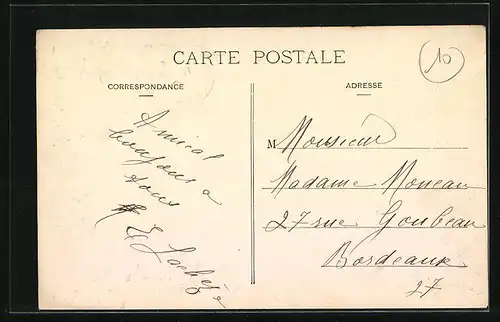 CARTE POSTALE
10
CORRESPONDANCE
ADRESSE
Amical
bonjour a
tous
M Monsieur
Madame Moneau
27 rue Goubeau
Bordeaux
27